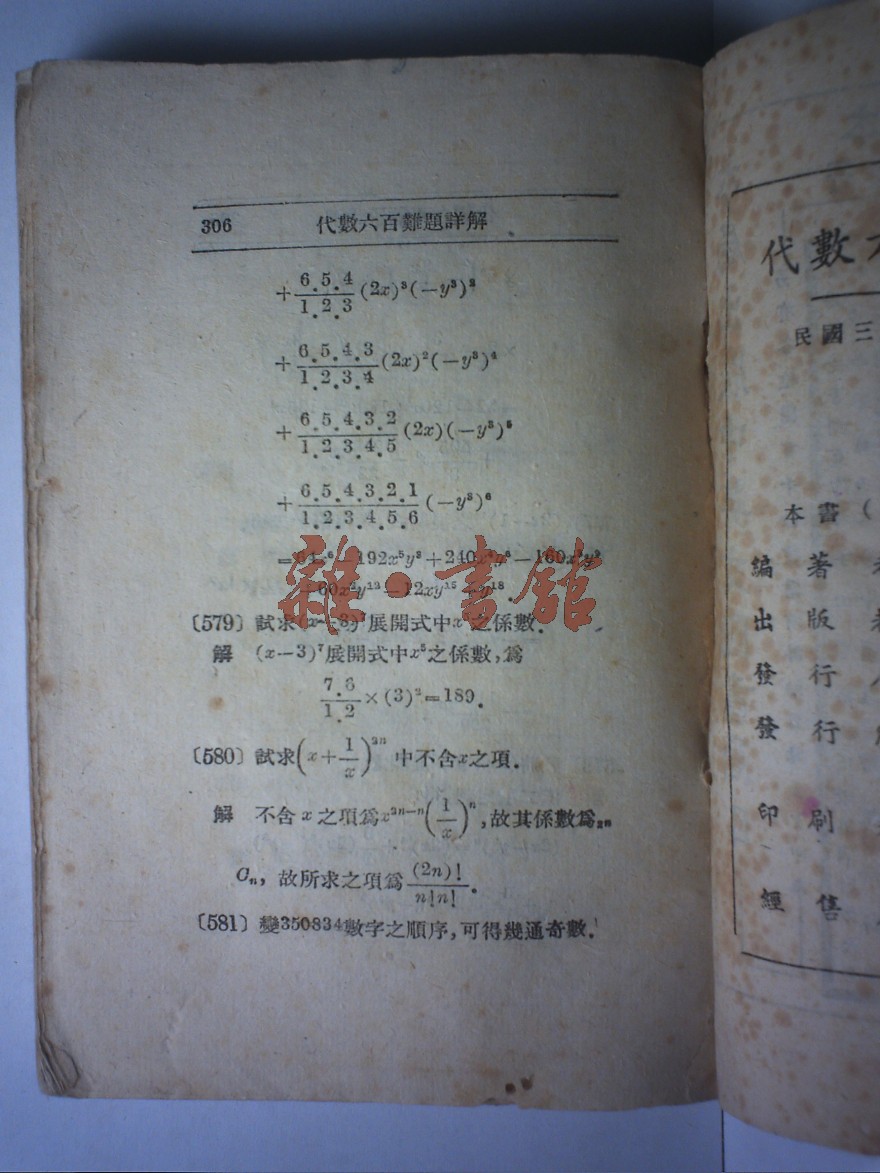 306 代數六百難題詳解
+ 6.5.4/1.2.3 (2x)³(−y³)³
+ 6.5.4.3/1.2.3.4 (2x)²(−y³)⁴
+ 6.5.4.3.2/1.2.3.4.5 (2x)(−y³)⁵
+ 6.5.4.3.2.1/1.2.3.4.5.6 (−y³)⁶
=64x⁶ 192x⁵y³+240x⁴y⁶−160x³y⁹
60x²y¹²−12xy¹⁵ y¹⁸.
〔579〕試求(x−3)⁷展開式中x 之係數.
解 (x−3)⁷展開式中x⁵之係數,爲
7.6/1.2 ×(3)²=189.
〔580〕試求(x+1/x)²ⁿ 中不含x之項.
解 不含 x 之項爲x²ⁿ⁻ⁿ(1/x)ⁿ,故其係數爲₂ₙ
Cₙ, 故所求之項爲 (2n)!/n!n!.
〔581〕變350834數字之順序,可得幾通奇數.
代數
民國三
本書(
編著
出版
發行
發行
印刷
經售
雜·書館